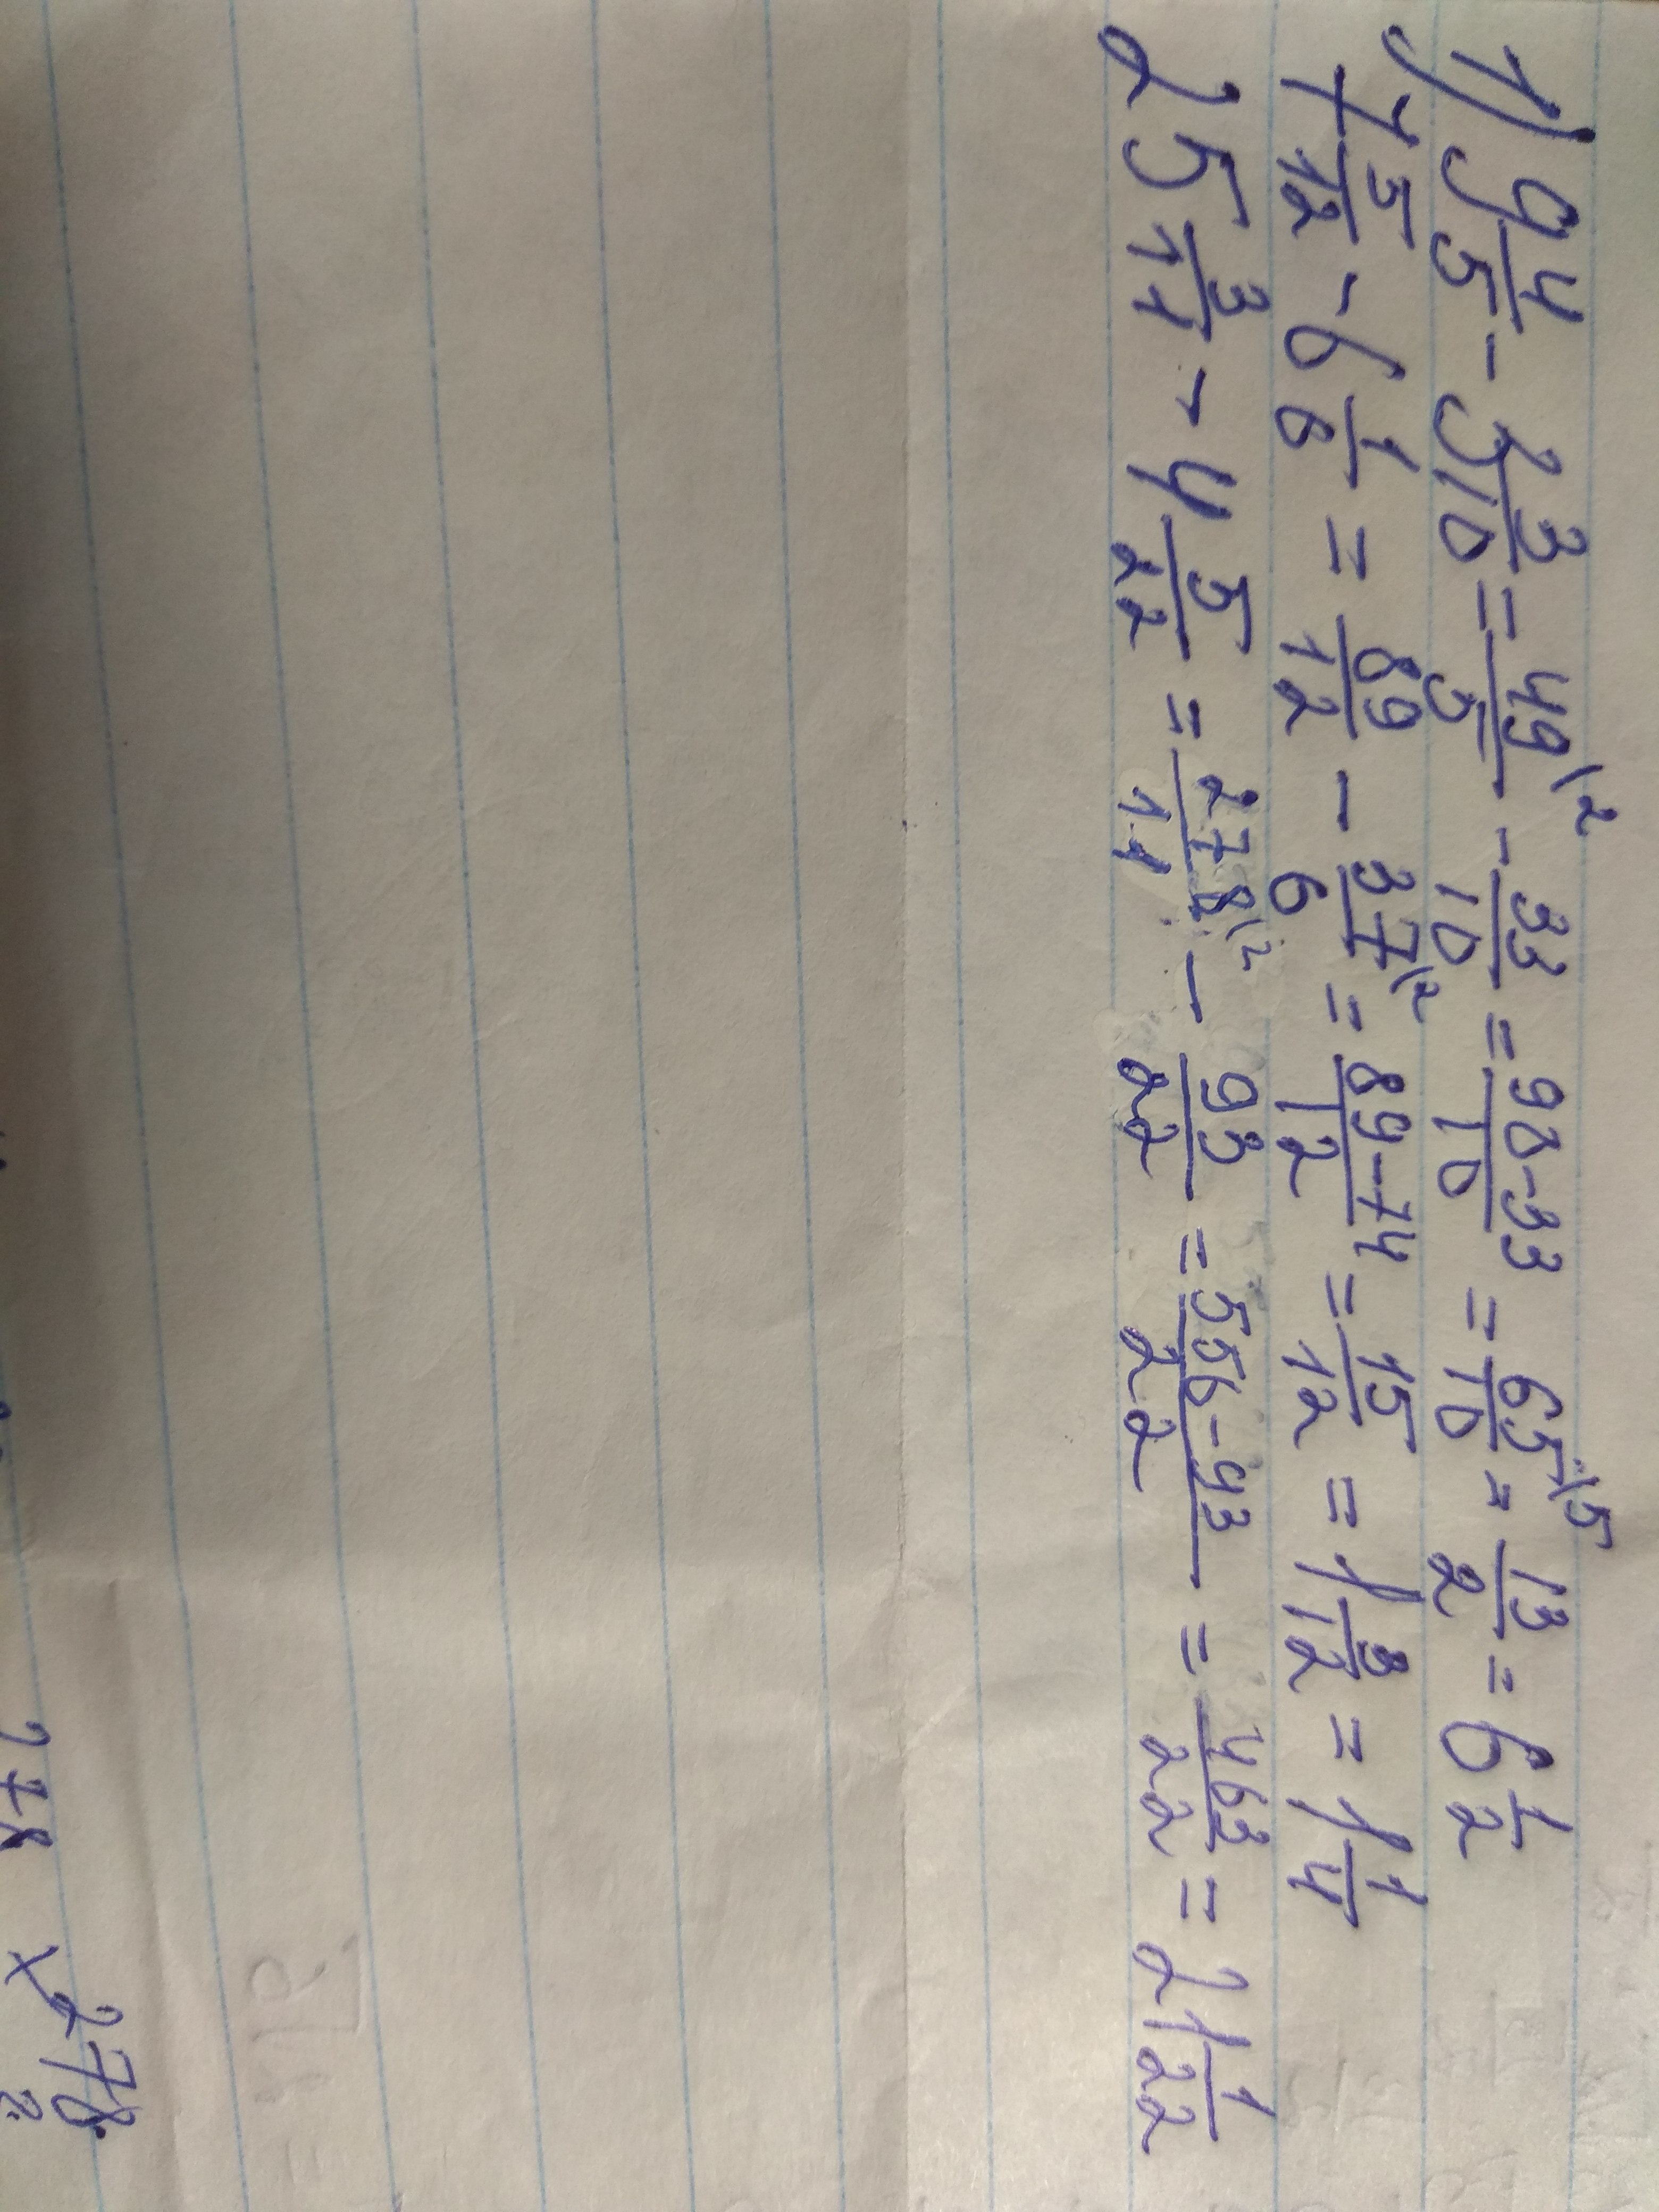 1) 9 4/5 - 3 3/10 = 49/5 \2 - 33/10 = 98-33/10 = 65/10 \5 = 13/2 = 6 1/2
7 5/12 - 6 1/6 = 89/12 - 37/6 \2 = 89-74/12 = 15/12 = 1 3/12 = 1 1/4
25 3/11 - 4 5/22 = 278/11 \2 - 93/22 = 556-93/22 = 463/22 = 21 1/22
278 x 278
2